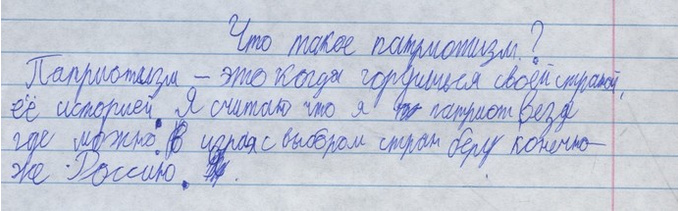 Что такое патриотизм?
Паприотизм – это когда гордишься своей страной,
её историей. Я считаю что я патриот везде
где можно. В играх с выбором стран беру конечно
же Россию.